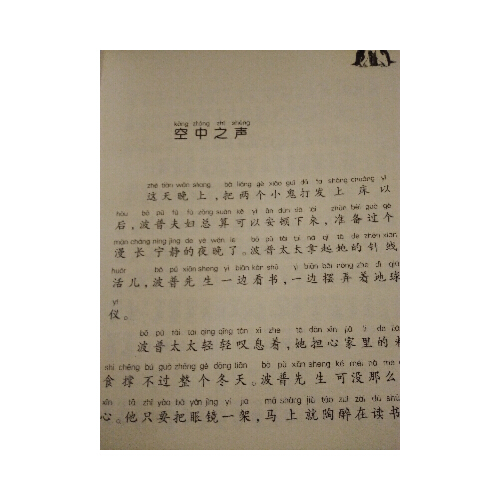 kōng zhōng zhī shēng
空中之声
zhè tiān wǎn shang bǎ liǎng gè xiǎo guǐ dǎ fa shàng chuáng yǐ
这天晚上，把两个小鬼打发上床以
hòu bō pǔ fū fù zǒng suàn kě yǐ ān dùn xià lái zhǔn bèi guò gè
后，波普夫妇总算可以安顿下来，准备过个
màn cháng níng jìng de yè wǎn le bō pǔ tài tai ná qǐ tā de zhēn xiàn
漫长宁静的夜晚了。波普太太拿起她的针线
huór bō pǔ xiān sheng yī biān kàn shū yī biān bǎi nòng zhe dì qiú
活儿，波普先生一边看书，一边摆弄着地球
yí
仪。
bō pǔ tài tai qīng qīng tàn xī zhe tā dān xīn jiā li de
波普太太轻轻叹息着，她担心家里的
shi chēng bú guò zhěng gè dōng tiān bō pǔ xiān sheng kě méi nà me
食撑不过整个冬天。波普先生可没那么
xīn tā zhǐ yào bǎ yǎn jìng yí jià mǎ shàng jiù táo zuì zài dú shū
心。他只要把眼镜一架，马上就陶醉在读书